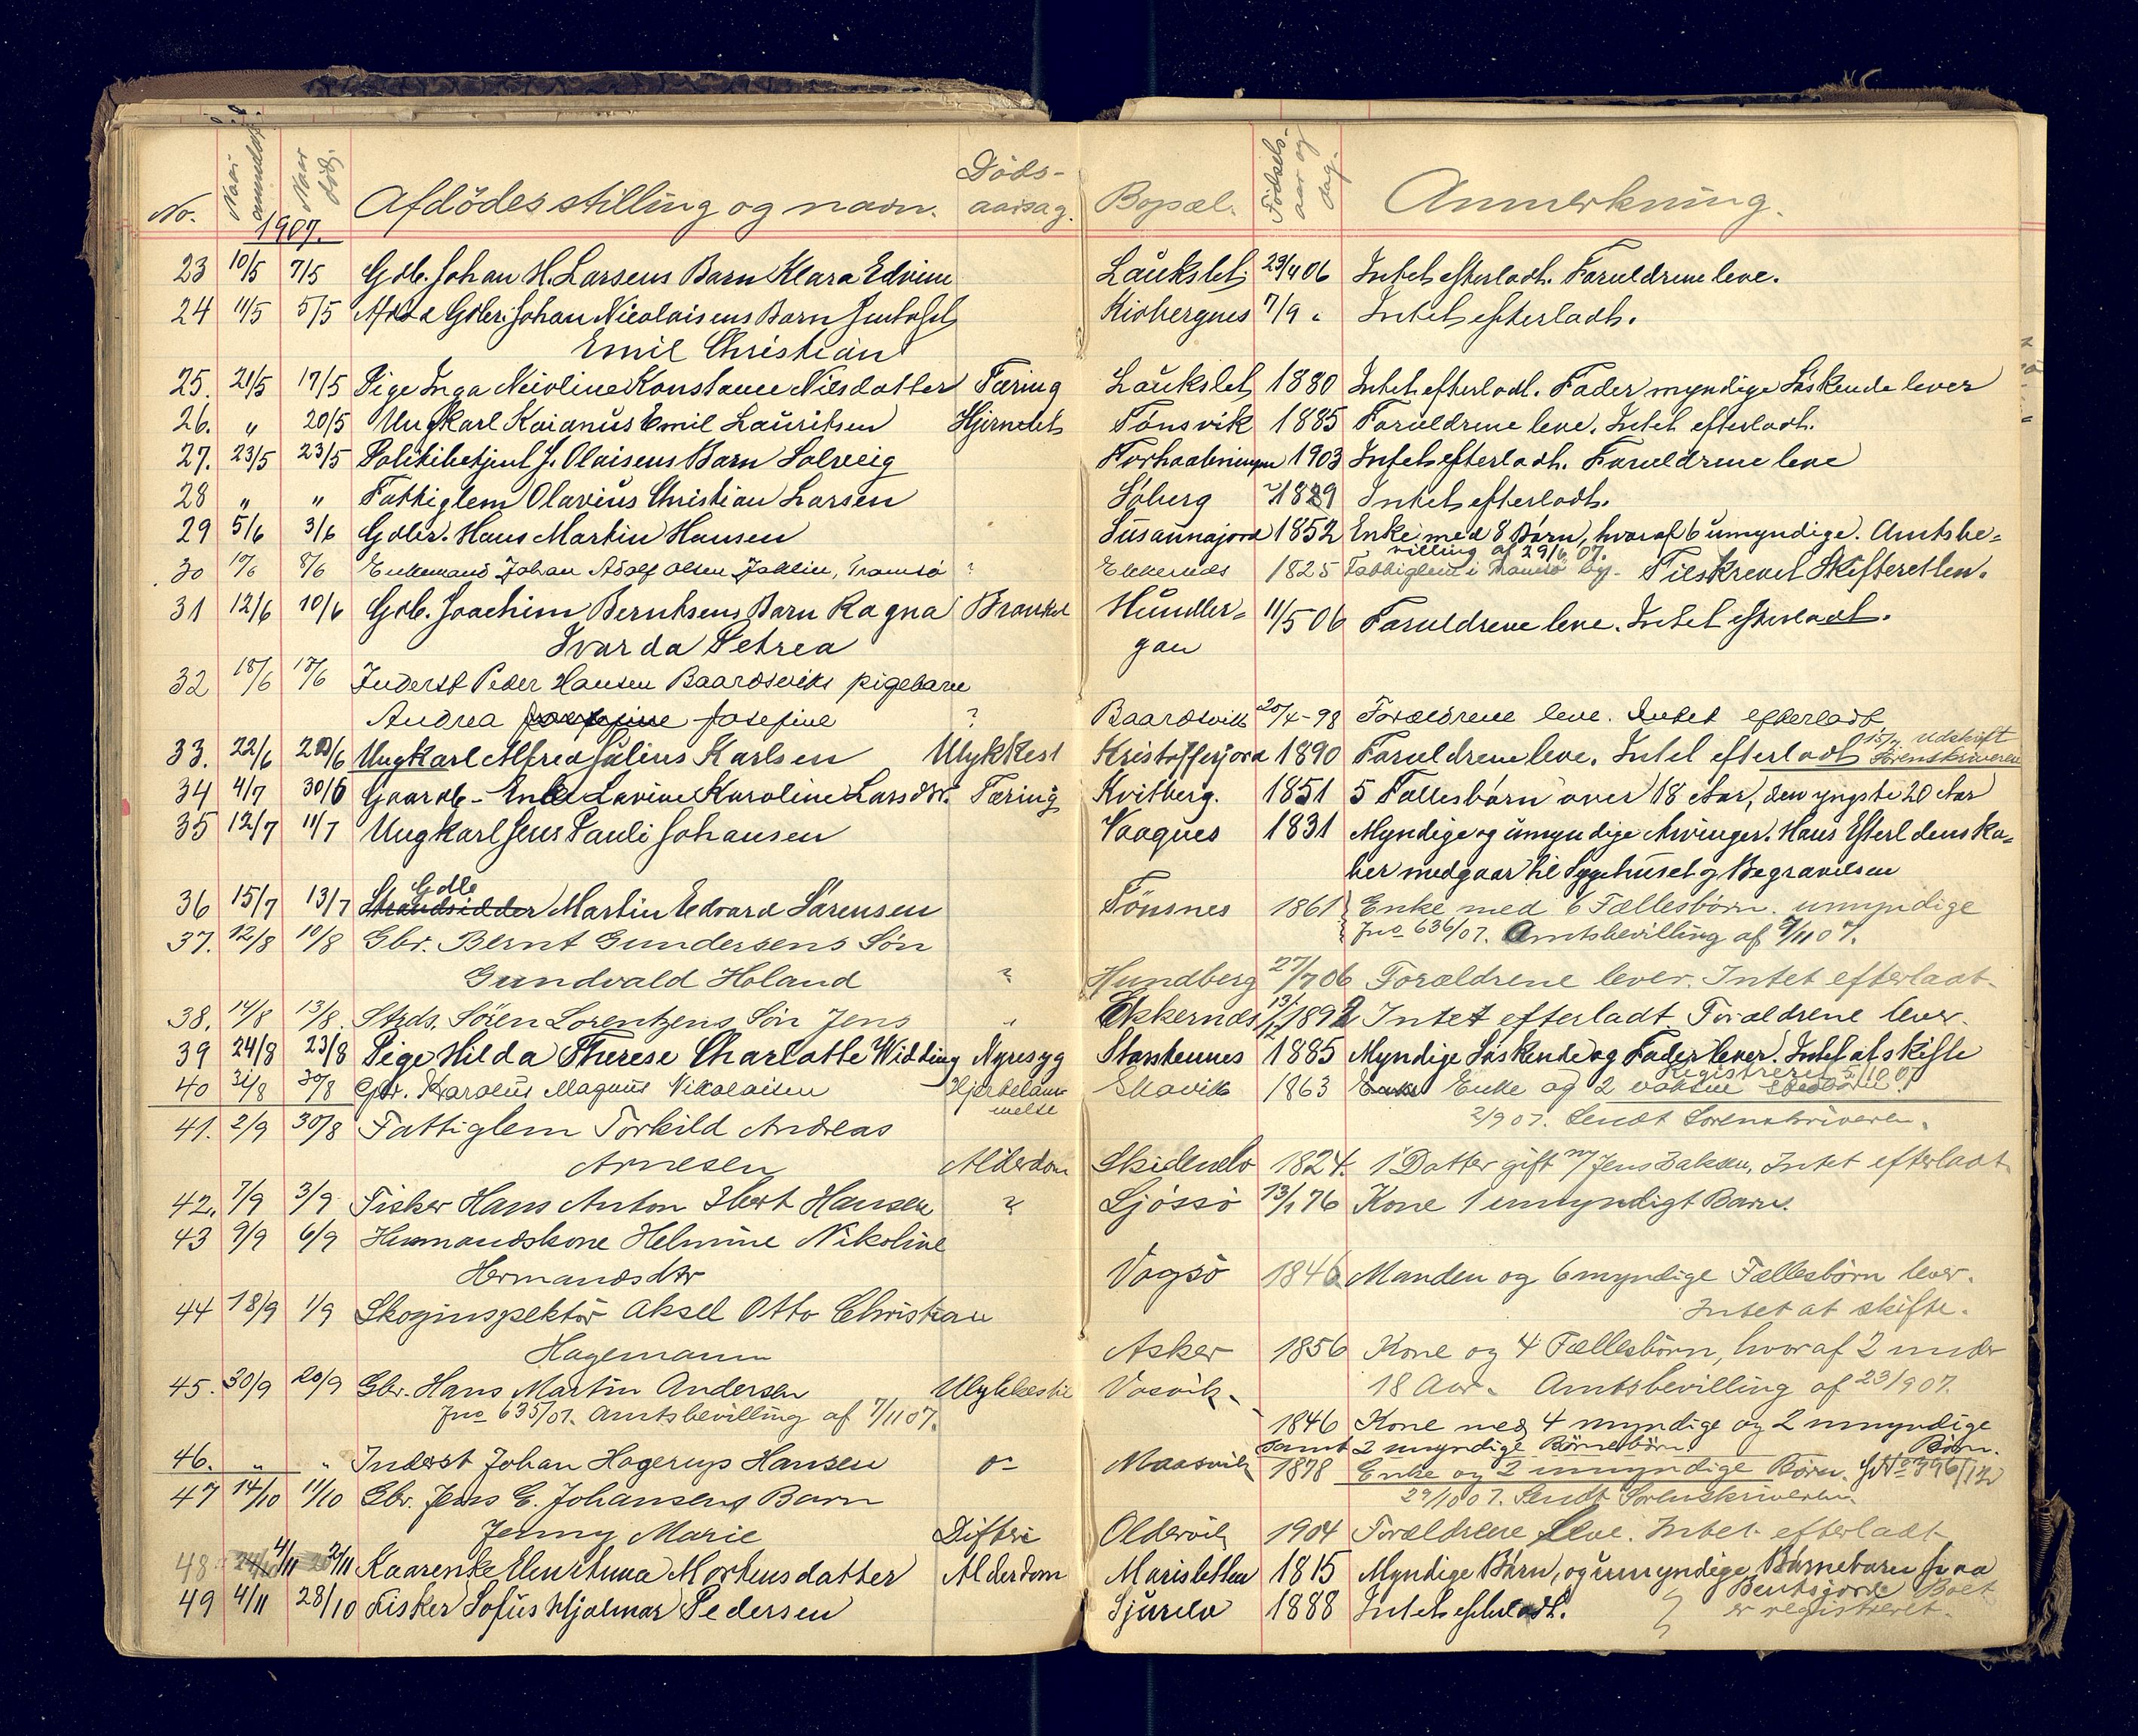 No. Naar anmeldt. Naar död. Afdödes stilling og navn. Döds-aarsag. Bopæl. Födsels-aar og dag. Anmerkning.
1907.
23 10/5 7/5 Gdb. Johan H. Larsens Barn Klara Edvine Laukslet 29/4 06 Intet efterladt. Foruldrene leve.
24 11/5 5/5 Gdbr. Johan Nicolaisens Barn Kirbergnes 7/9 " Intet efterladt.
Emil Christian
25. 21/5 17/5 Pige Inga Nicoline Konstance Nilsdatter Tæring Laukslet 1880 Intet efterladt. Fader myndige Söskende lever
26. " 20/5 Ungkarl Kaianus Emil Lauritsen Tönsvik 1885 Foruldrene leve. Intet efterladt.
27. 23/5 23/5 Politibetjent J. Olaisens Barn Solveig Forhaabningen 1903 Intet efterladt. Foruldrene leve
28 " " Fattiglem Olavius Christian Larsen Söberg 1829 Intet efterladt.
29 5/6 3/6 Gdbr. Hans Martin Hansen Susannajord 1852 Enke med 8 Börn, hvoraf 6 umyndige. Amtsbe=
villing af 29/6 07.
30 10/6 8/6 Enkemand Johan Adolf Olsen Jaklin, Tromsö ? Ekkernes 1825 Fattiglem i Tromsö by. Tilskrevet Skifteretten.
31 12/6 10/6 Gdb. Joachim Berntsens Barn Ragna Hundber= 11/5 06 Foruldrene leve. Intet efterladt.
Ivarda Petrea gan
32 18/6 17/6 Inderst Peder Hansen Baardsviks pigebarn
Andrea Josefine Josefine ? Baardsvik 20/4-98 Forældrene leve. Intet efterladt
15/7 Udskrift
33. 22/6 20/6 Ungkarl Alfred Julius Karlsen Ulykkest Kristoffejord 1890 Foruldrene leve. Intet efterladt Sorenskriveren
34 4/7 30/6 Gaardb- Enke Lavine Karoline Larsdtr. Tæring Kvitberg. 1851 5 Fællesbörn over 18 Aar, den yngste 20 Aar
35 12/7 11/7 Ungkarl Jens Pauli Johansen Vaagnes 1831 Myndige og umyndige Arvinger. Hans Efterl denska=
ber medgaar til Sygehuset og Begravelsen
Gdb
36 15/7 13/7 Strandsidder Martin Edvard Sörensen Tönsnes 1861 Enke med 6 Fællesbörn. umyndige
Jno 636/07. Amtsbevilling af 7/11 07.
37. 12/8 10/8 Gbr. Bernt Gundersens Sön
Gundvald Holand ? Hundberg 27/7 06 Forældrene lever. Intet efterladt.
38. 14/8 13/8. Strds. Sören Lorentzens Sön Jens " Ekkernes 1892 Intet efterladt Forældrene lever.
39 24/8 23/8 Pige Hilda Therese Charlotte Widding Nyresyg Storstennes 1885 Myndige Söskende og Fader lever. Intet at skifte
Registreret 5/10 07
40 31/8 30/8 Gbr. Karolus Magnus Nikolaisen Hjertelam- Skavik 1863 Enke Enke og 2 voksne
melse 2/9 07. Sendt Sorenskriveren.
41. 2/9 30/8 Fattiglem Torkild Andreas
Arnesen Alderdom Skidenelv 1824. 1 Datter gift m/ Jens Intet efterladt.
42. 7/9 3/9 Fisker Hans Anton Ebert Hansen ? Sjössö 13/1 76 Kone 1 umyndigt Barn.
43 9/9 6/9 Husmandskone Helmine Nikoline
Hermansdtr Vagsö 1846 Manden og 6 myndige Fællesbörn lever.
Intet at skifte.
44 18/9 1/9 Skoginspektör Aksel Otto Christian
Hagemann Asker 1856 Kone og 4 Fællesbörn, hvoraf 2 under
18 Aar. Amtsbevilling af 23/9 07.
45. 30/9 20/9 Gbr. Hans Martin Andersen Ulykkestil Vasvik.
Jno 635/07. Amtsbevilling af 7/11 07. 1846 Kone med 4 myndige og 2 umyndige
samt 2 umyndige Börnebörn Börn.
46. " " Inderst Johan Hagerup Hansen o- Maasvik 1878 Enke og 2 umyndige Börn.
29/10 07. Sendt Sorenskriveren.
47 14/10 11/10 Gbr. Jens E. Johansens Barn
Jenny Marie Difteri Oldervik 1904 Forældrene leve. Intet efterladt
48 4/11 2/11 Kaarenke Mortensdatter Alderdom Marisletten 1815 Myndige Börn, og umyndige Börnebarn fraa
Bentsjord Boet
49 4/11 28/10 Fisker Sofus Hjalmar Pedersen Sjurelv 1888 Intet efterladt. er registreret.